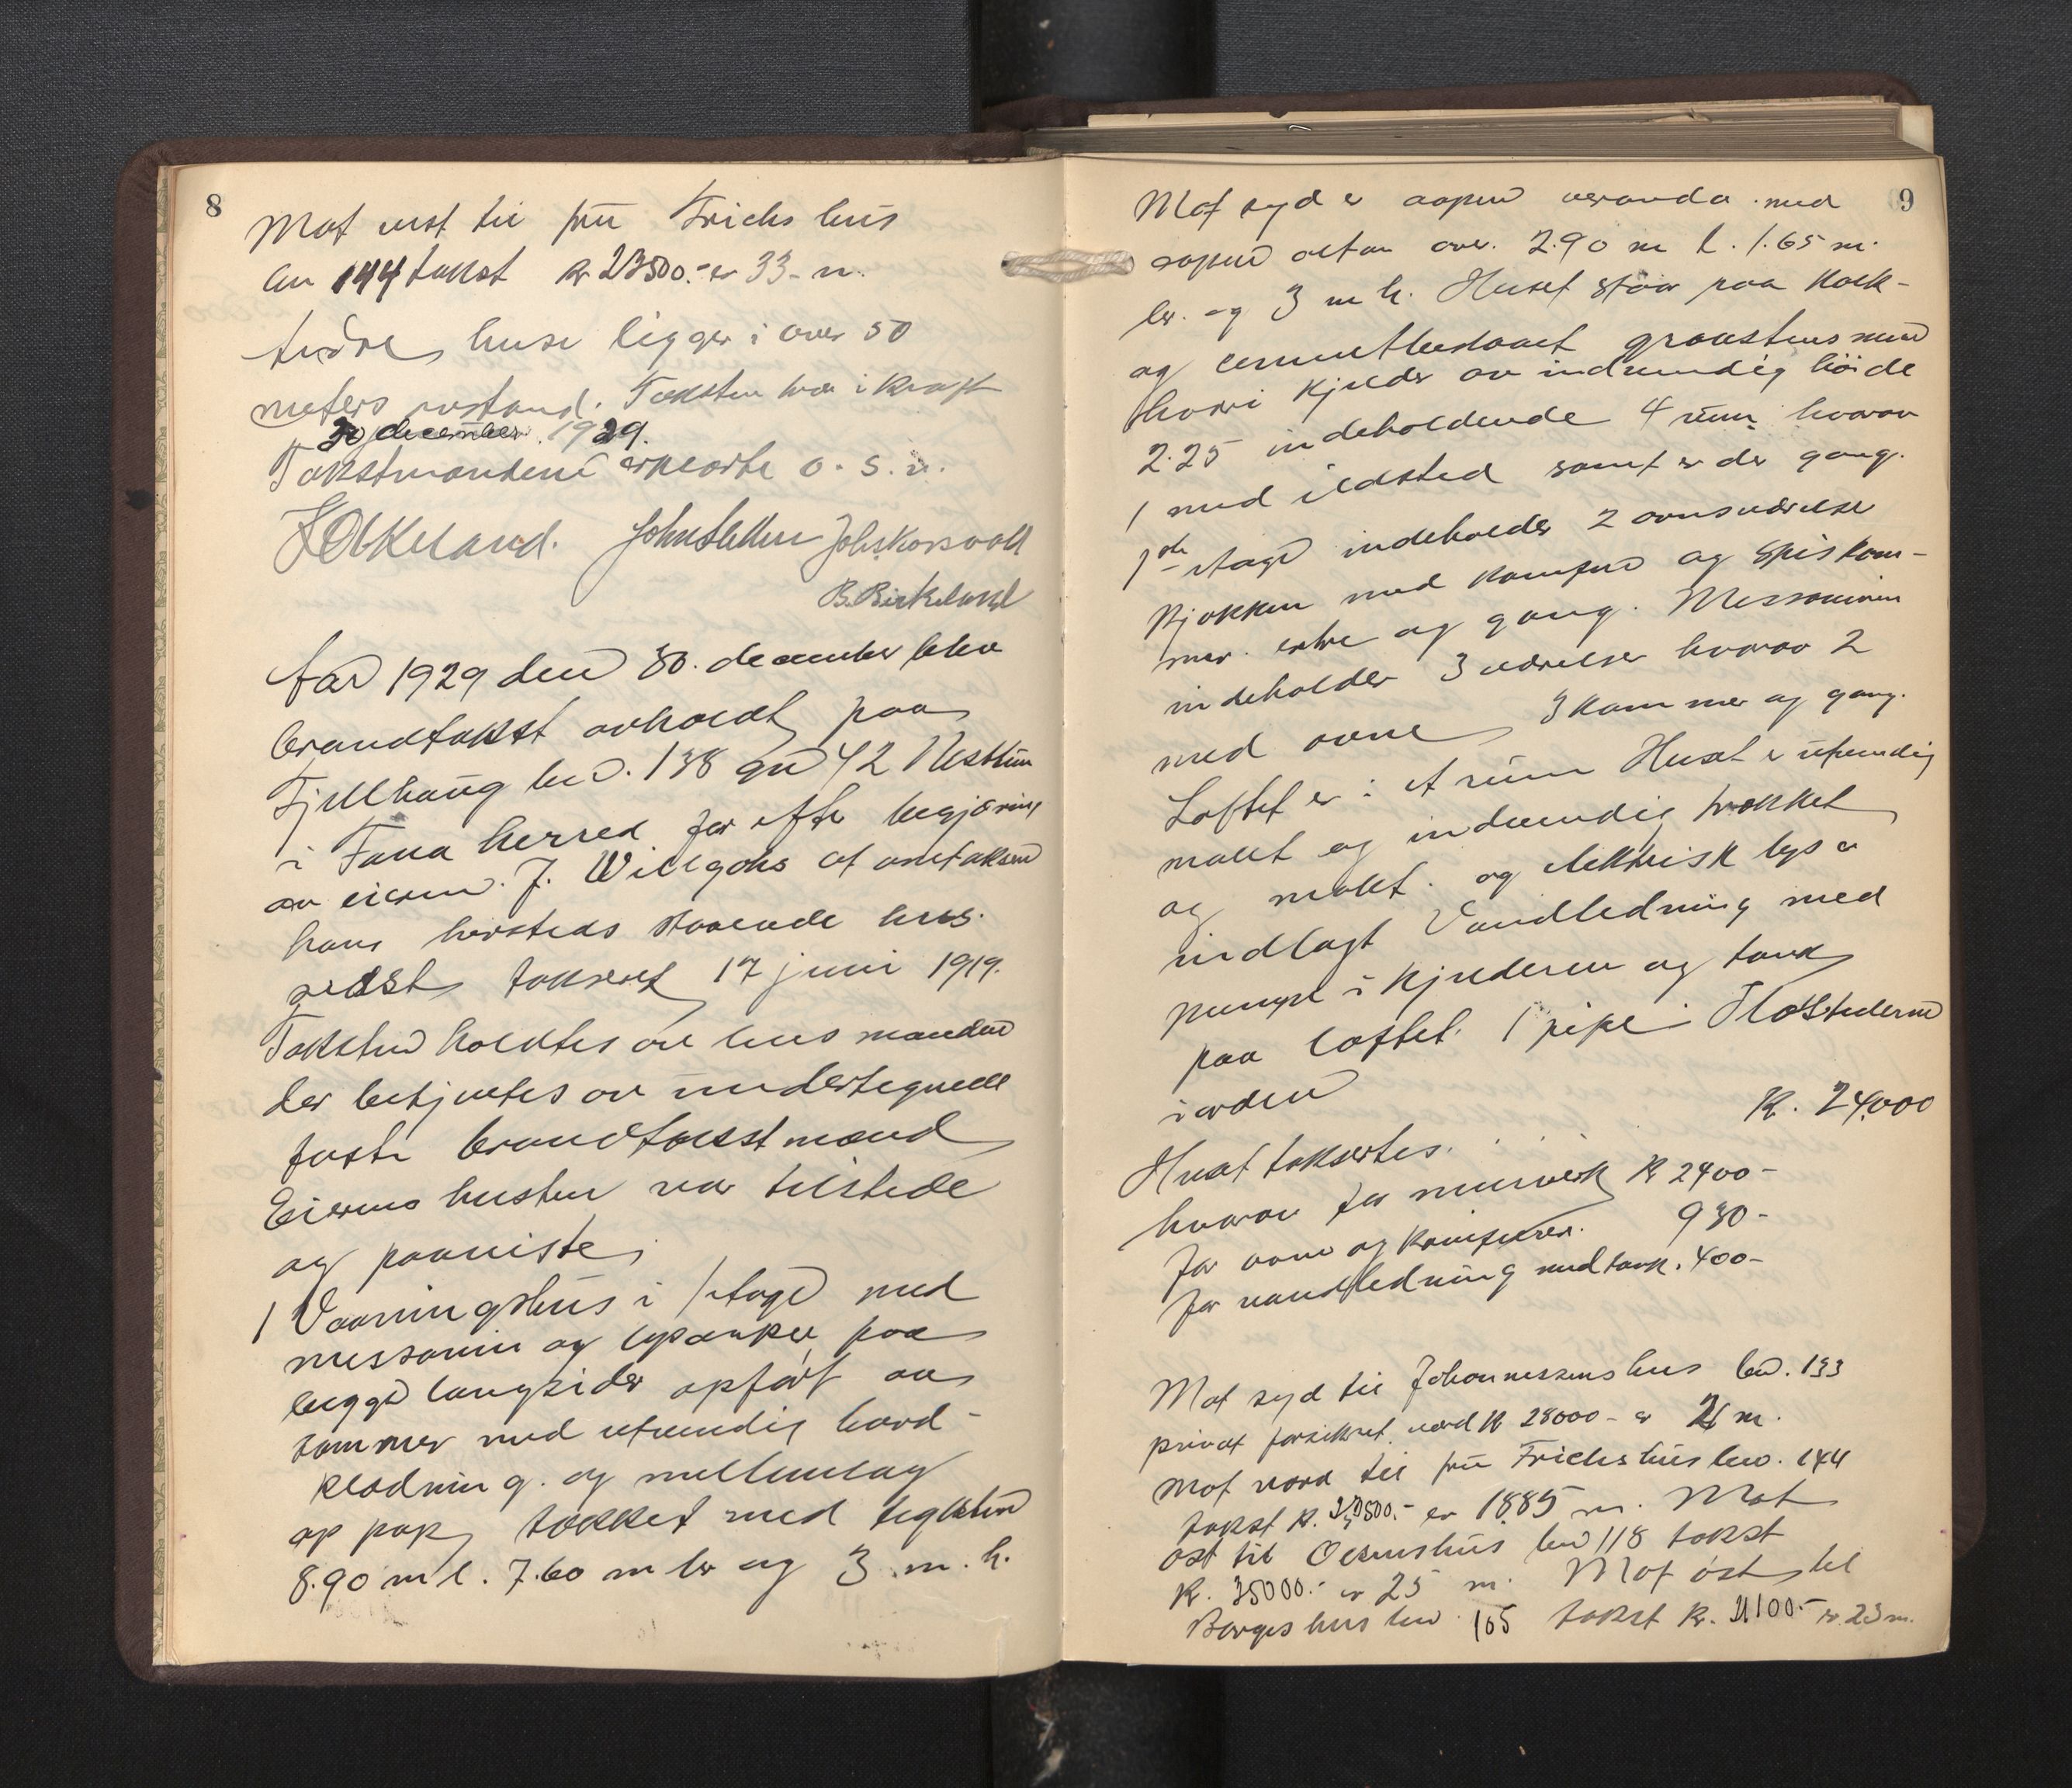 8
Mot vest til frü Frichs hus
bn 144 takst kr 23500.- er 33- m.
Andre huse ligger i over 50
meters avstand. Taksten træ i kraft
30 december 1929.
Takstmændene erklærte o. s. v.
John Sælen Johs Korsvold
B. Birkeland
Aar 1929 den 30. december blev
brandtakst avholdt paa
Fjellhaug bn. 138 gn 42 Nesttun
i Fana herred for efter begjæring
av eieren J. Willgohs at omtaksere
hans hersteds staaende hus
sidst taksert 17 juni 1919.
Taksten holdtes av lensmanden
der betjentes av undertegnede
faste brandtakstmænd
Eierens hustru var tilstede
og paaviste;
1 Vaaningshus i 1 etage med
messanin og oparker paa
begge langsider opført av
tømmer med utvendig bord-
klædning. og mellemlag
av pap, tækket med teglsten
8.90 m l. 7.60 m br og 3 m. h.
9
Mot syd er aapen veranda med
aapen altan over. 2.90 m l. 1.65 m.
br. og 3 m h. Huset staar paa kalk-
og cementbestaaet graastensmur
hvori kjelder av indvendig høide
2.25 indeholdende 4 rum hvorav
1 med ildsted samt er der gang.
1ste etage indeholder 2 ovnsværelser
kjøkken med komfur og spiskam-
mer. entre og gang. Messaninen
indeholder 3 værelser hvorav 2
med ovne 3 kammer og gang.
Loftet er i et rum Huset er utvendig
malt og indvendig trækket
og malt. og elektrisk lys er
indlagt Vandledning med
pumpe i kjelderen og tank
paa loftet. 1 pipe Ildstederne
i orden
Kr. 24,000
Huset takseertes.
hvorav for murverk kr 2400-
for ovne og komfurer. 930-
for vandledning med tank. 400-
Mot syd til Johannessens hus bn. 133
privat forsikret verd kr 28000- er 21 m.
Mot nord til frü Frichs hus bn. 144
takst kr. 23,500.- er 18.85 m. Mot
øst til Olsens hus bn 118 takst
kr. 35000.- er 25 m. Mot øst til
Borges hus bn 105 takst kr. 21100.- er 23 m.